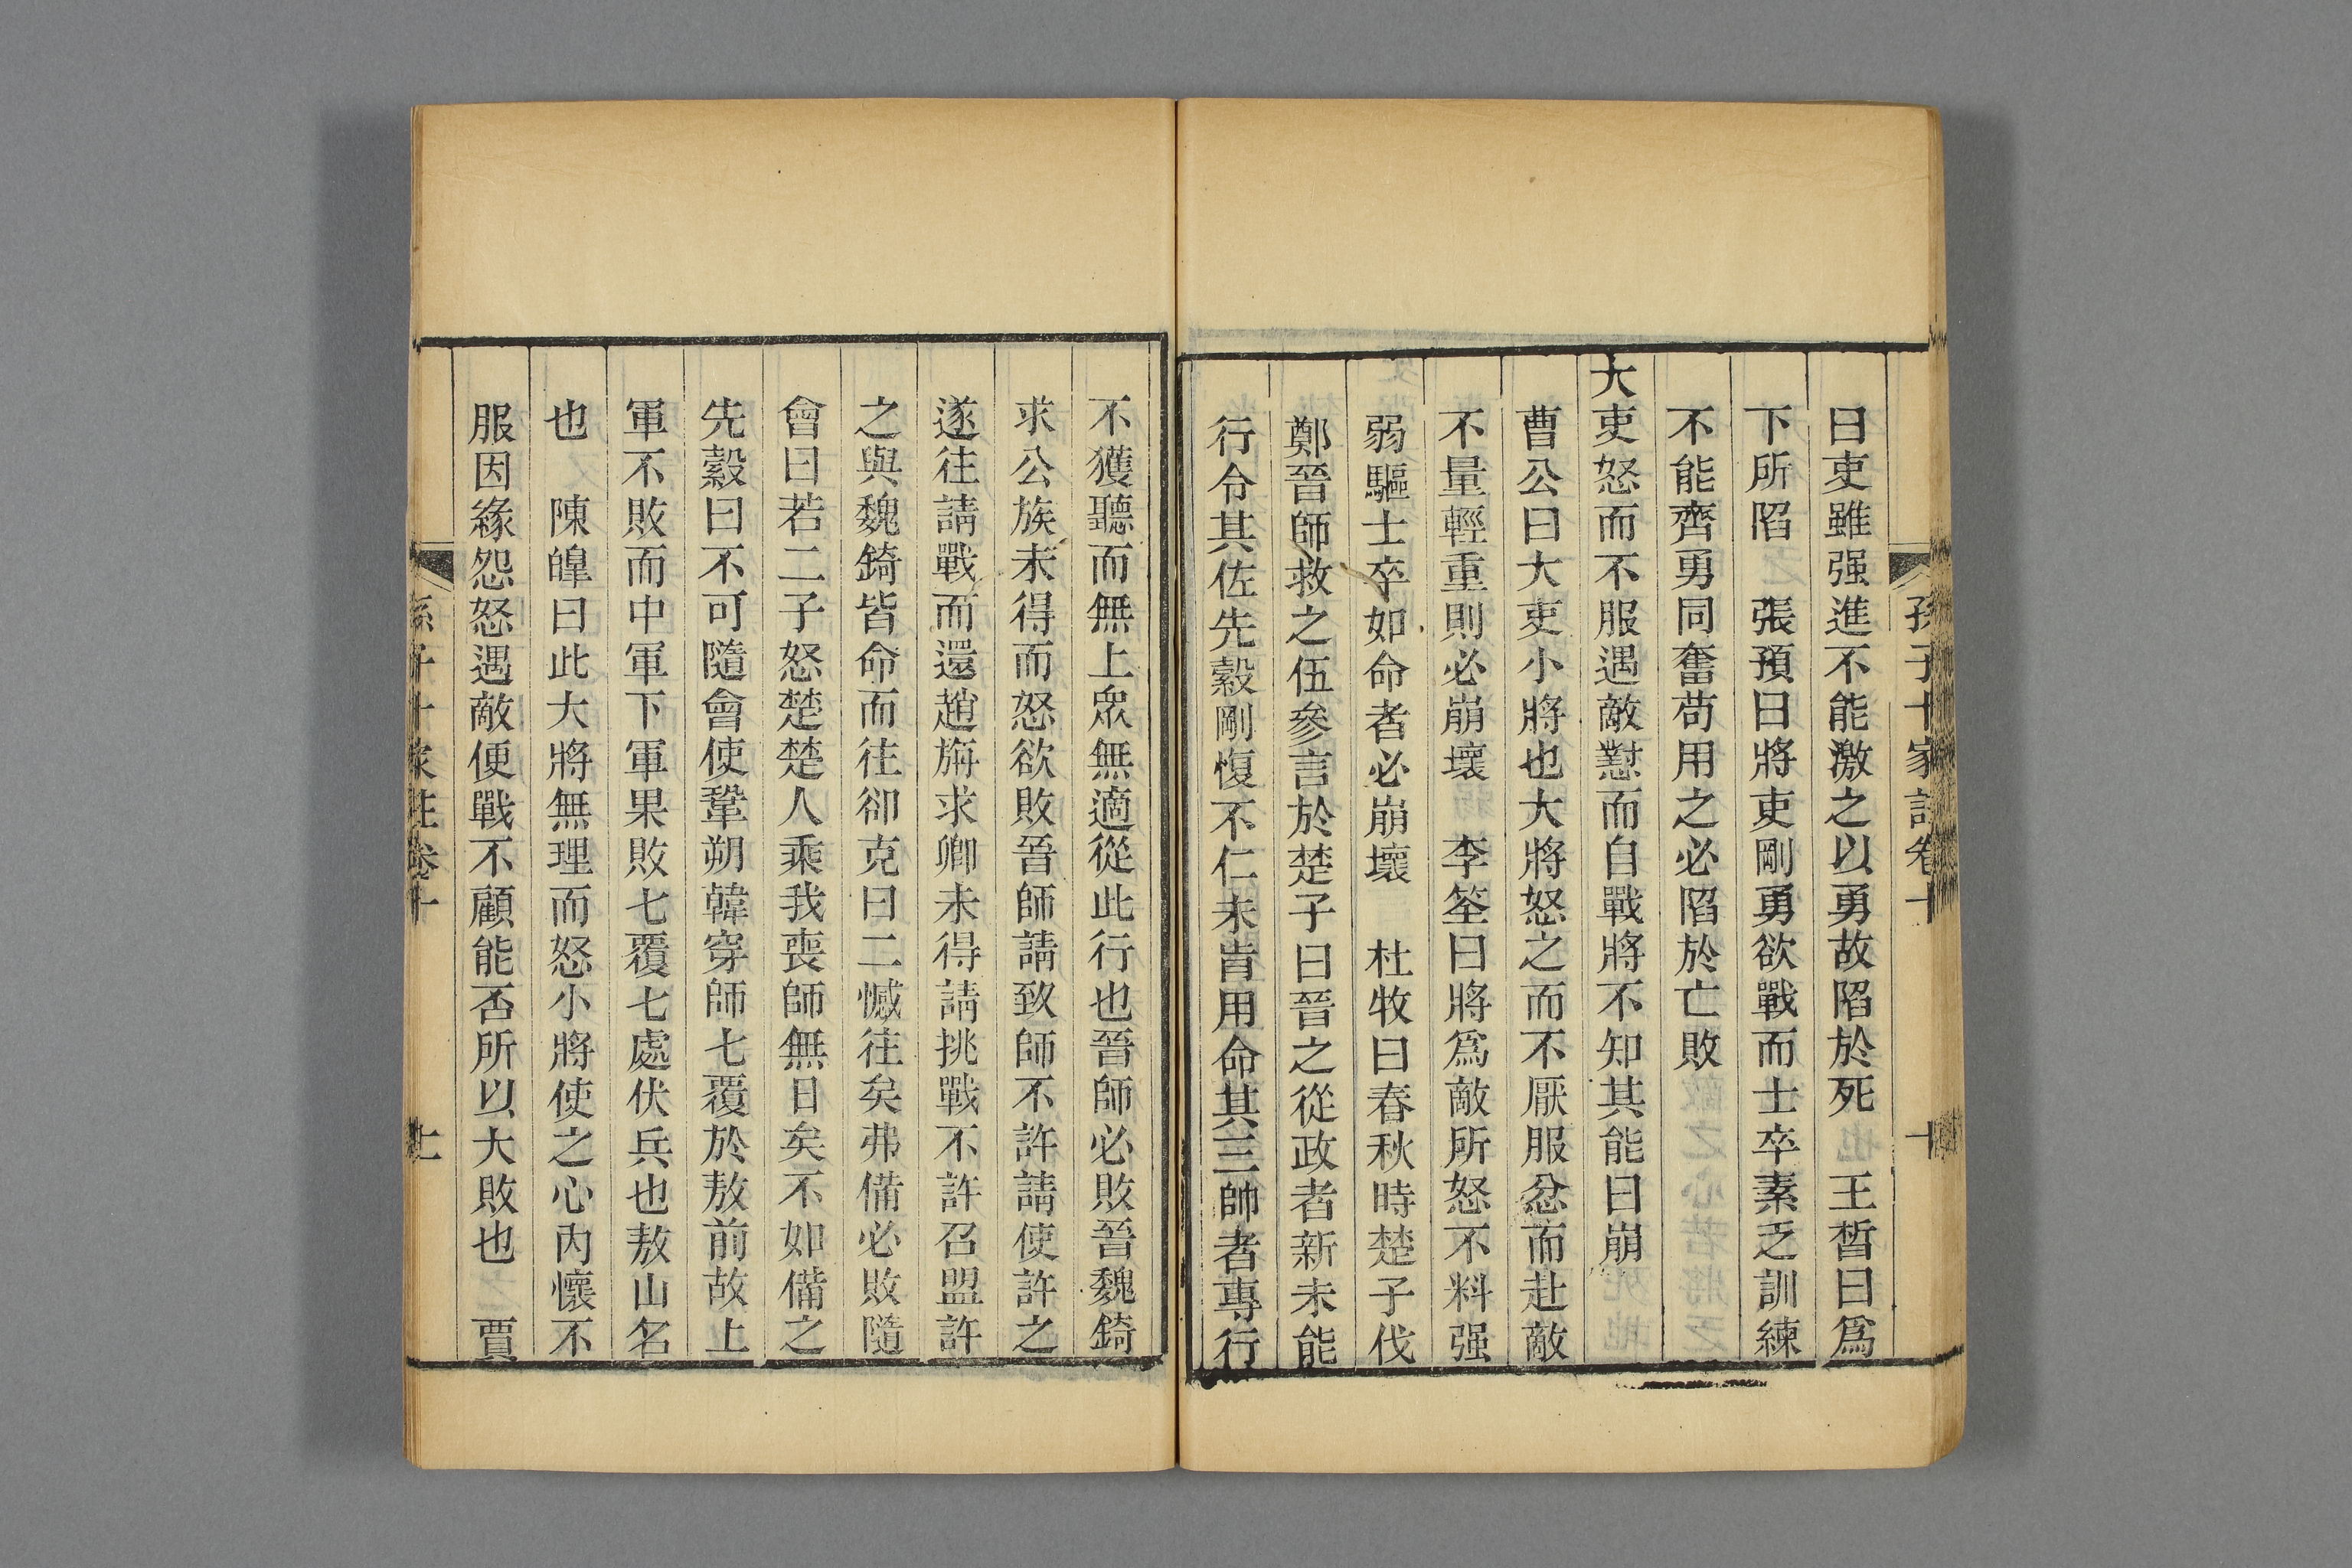 孫子十家註卷十 十
曰吏雖强進不能激之以勇故陷於死 王晳曰爲
下所陷 張預曰將吏剛勇欲戰而士卒素乏訓練
不能齊勇同奮苟用之必陷於亡敗
大吏怒而不服遇敵懟而自戰將不知其能曰崩
曹公曰大吏小將也大將怒之而不厭服忿而赴敵
不量輕重則必崩壞 李筌曰將爲敵所怒不料强
弱驅士卒如命者必崩壞 杜牧曰春秋時楚子伐
鄭晉師救之伍參言於楚子曰晉之從政者新未能
行令其佐先縠剛愎不仁未肯用命其三帥者專行
不獲聽而無上眾無適從此行也晉師必敗晉魏錡
求公族未得而怒欲敗晉師請致師不許請使許之
遂往請戰而還趙旃求卿未得請挑戰不許召盟許
之與魏錡皆命而往郤克曰二憾往矣弗備必敗隨
會曰若二子怒楚楚人乘我喪師無日矣不如備之
先縠曰不可隨會使鞏朔韓穿師七覆於敖前故上
軍不敗而中軍下軍果敗七覆七處伏兵也敖山名
也 陳皥曰此大將無理而怒小將使之心內懷不
服因緣怨怒遇敵便戰不顧能否所以大敗也 賈
孫子十家註卷十 十一